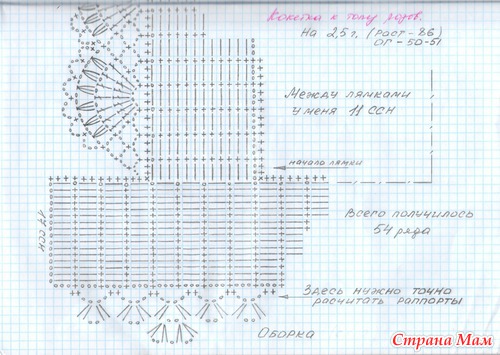 Кокетка к топу розов.
На 2,5 г. (рост-86)
ОГ-50-51
Между лямками
у меня 11 ССН
начало лямки
17 ССН
Всего получилось
54 ряда
Здесь нужно точно
расчитать раппорты
ОБОРКА
Страна Мам